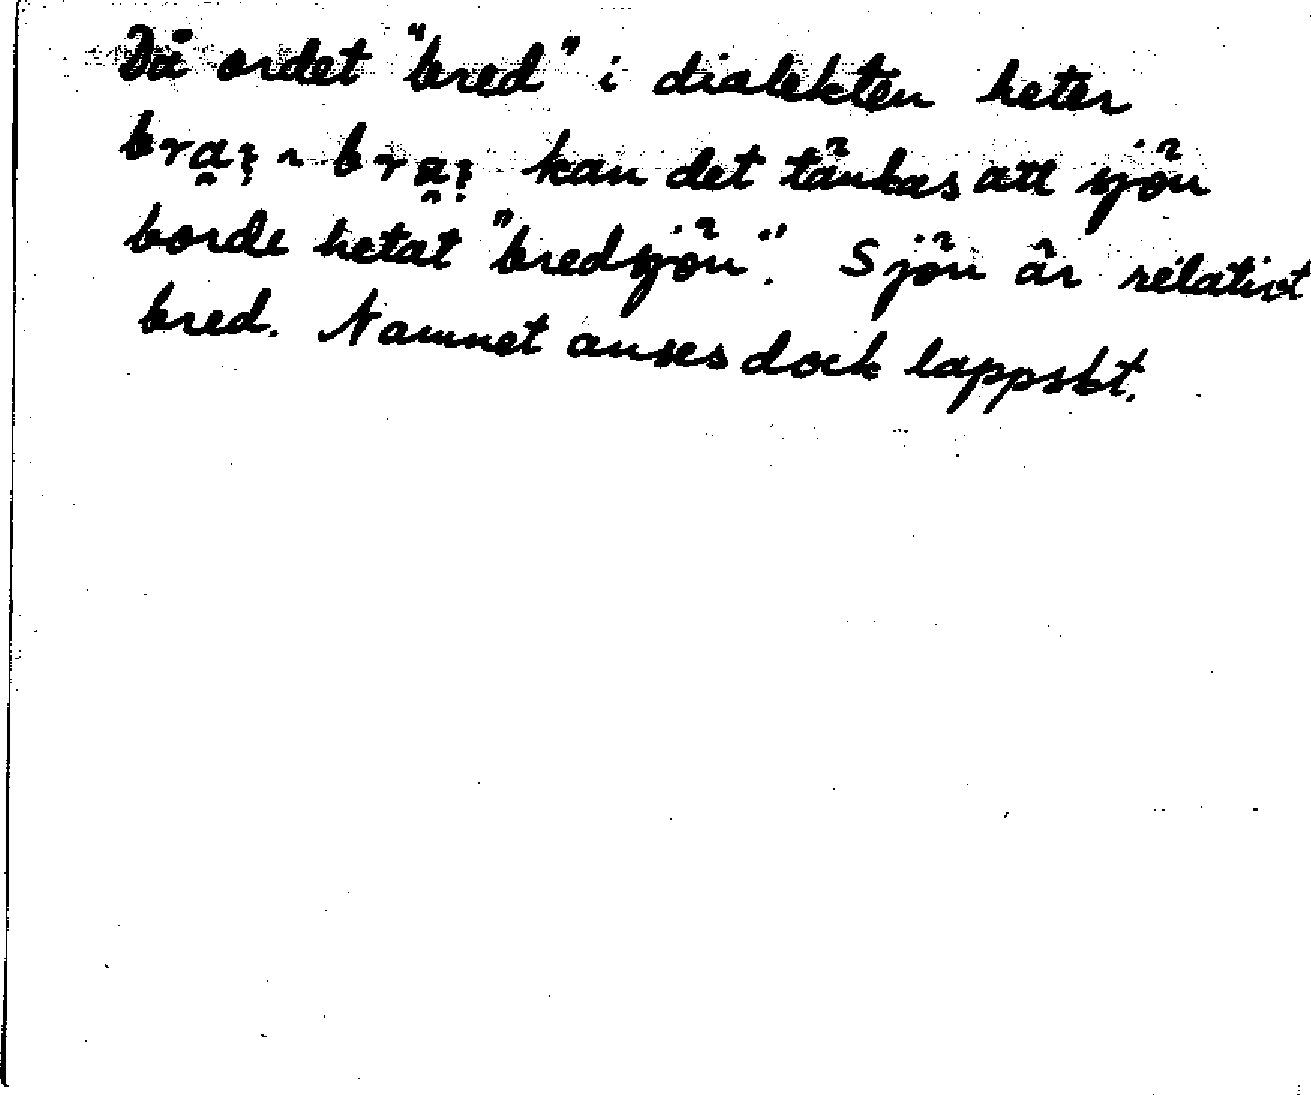 Då ordet "bred" i dialekten heter
kan det tänkas att sjön
borde hetat "bredsjön". Sjön är relativt
bred. Namnet anses dock lappskt.